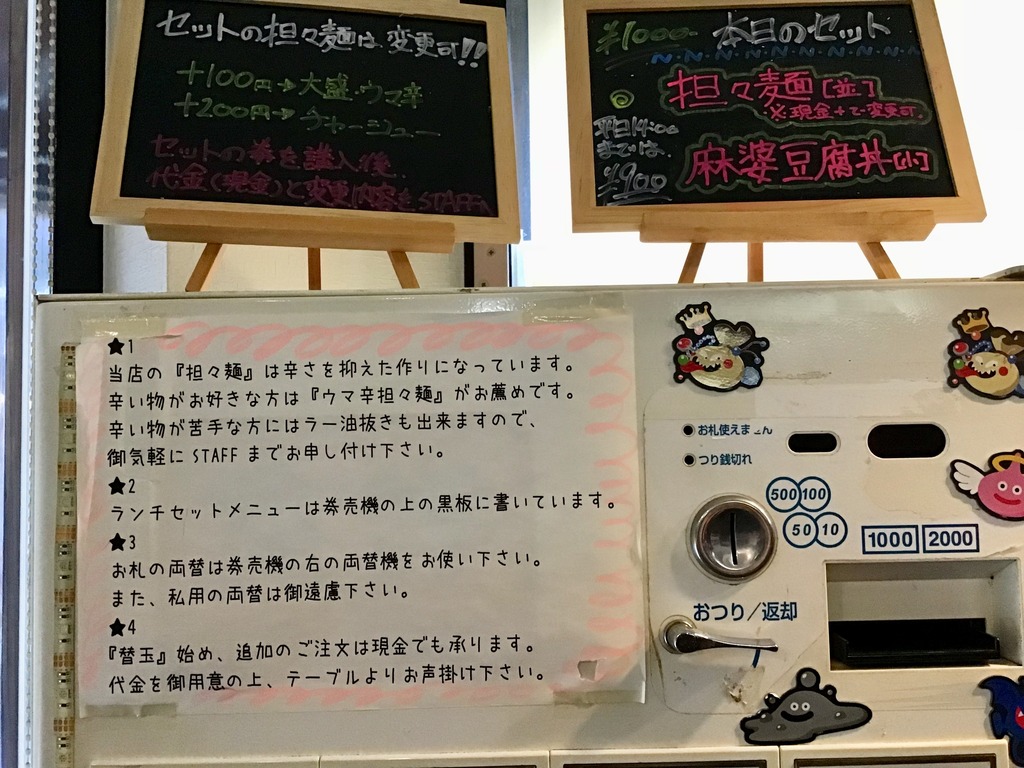 セットの担々麺は変更可!!
+100円→大盛.ウマ辛
+200円→チャーシュー
セットの券を購入後.
代金(現金)と変更内容をSTAFFへ
¥1000-
本日のセット
担々麺[並]
※現金+で変更可.
平日14:00
までは.
¥900
麻婆豆腐丼[小]
★1
当店の『担々麺』は辛さを抑えた作りになっています。
辛い物がお好きな方は『ウマ辛担々麺』がお薦めです。
辛い物が苦手な方にはラー油抜きも出来ますので、
御気軽にSTAFFまでお申し付け下さい。
★2
ランチセットメニューは券売機の上の黒板に書いています。
★3
お札の両替は券売機の右の両替機をお使い下さい。
また、私用の両替は御遠慮下さい。
★4
『替玉』始め、追加のご注文は現金でも承ります。
代金を御用意の上、テーブルよりお声掛け下さい。
お札使えません
つり銭切れ
500 100
50 10
1000 2000
おつり/返却